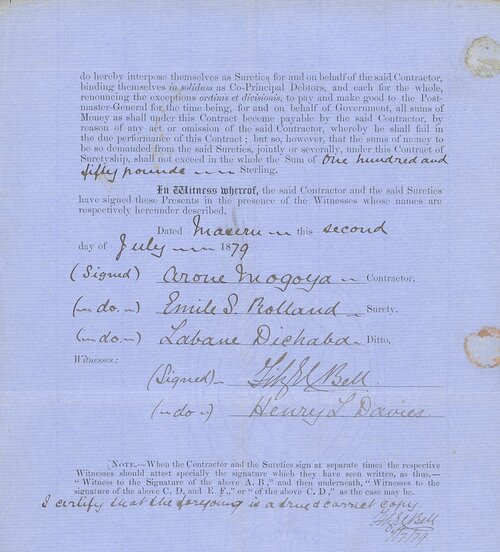 do hereby interpose themselves as Sureties for and on behalf of the said Contractor,
binding themselves in solidum as Co-Principal Debtors, and each for the whole,
renouncing the exceptions ordinus et divisionis, to pay and make good to the Post-
master-General for the time being, for and on behalf of Government, all sums of
Money as shall under this Contract become payable by the said Contractor, by
reason of any act or omission of the said Contractor, whereby he shall fail in
the due performance of this Contract; but so, however, that the sums of money to
be so demanded from the said Sureties, jointly or severally, under this Contract of
Suretyship, shall not exceed in the whole the Sum of One hundred and
fifty pounds Sterling.
In Witness whereof, the said Contractor and the said Sureties
have signed these Presents in the presence of the Witnesses whose names are
respectively hereunder described.
Dated Maseru this second
day of July 1879
(Signed) Arone Mogoya Contractor.
( do. ) Emile S. Rolland Surety.
( do. ) Labane Dichaba Ditto.
Witnesses:
(Signed) Bell.
( do ) Henry L Davies
[NOTE.—When the Contractor and the Sureties sign at separate times the respective
Witnesses should attest specially the signature which they have seen written, as thus,—
"Witness to the Signature of the above A. B," and then underneath, "Witnesses to the
signature of the above C. D, and E F.," or "of the above C. D," as the case may be.
I certify that the foregoing is a true & correct copy.
Bell